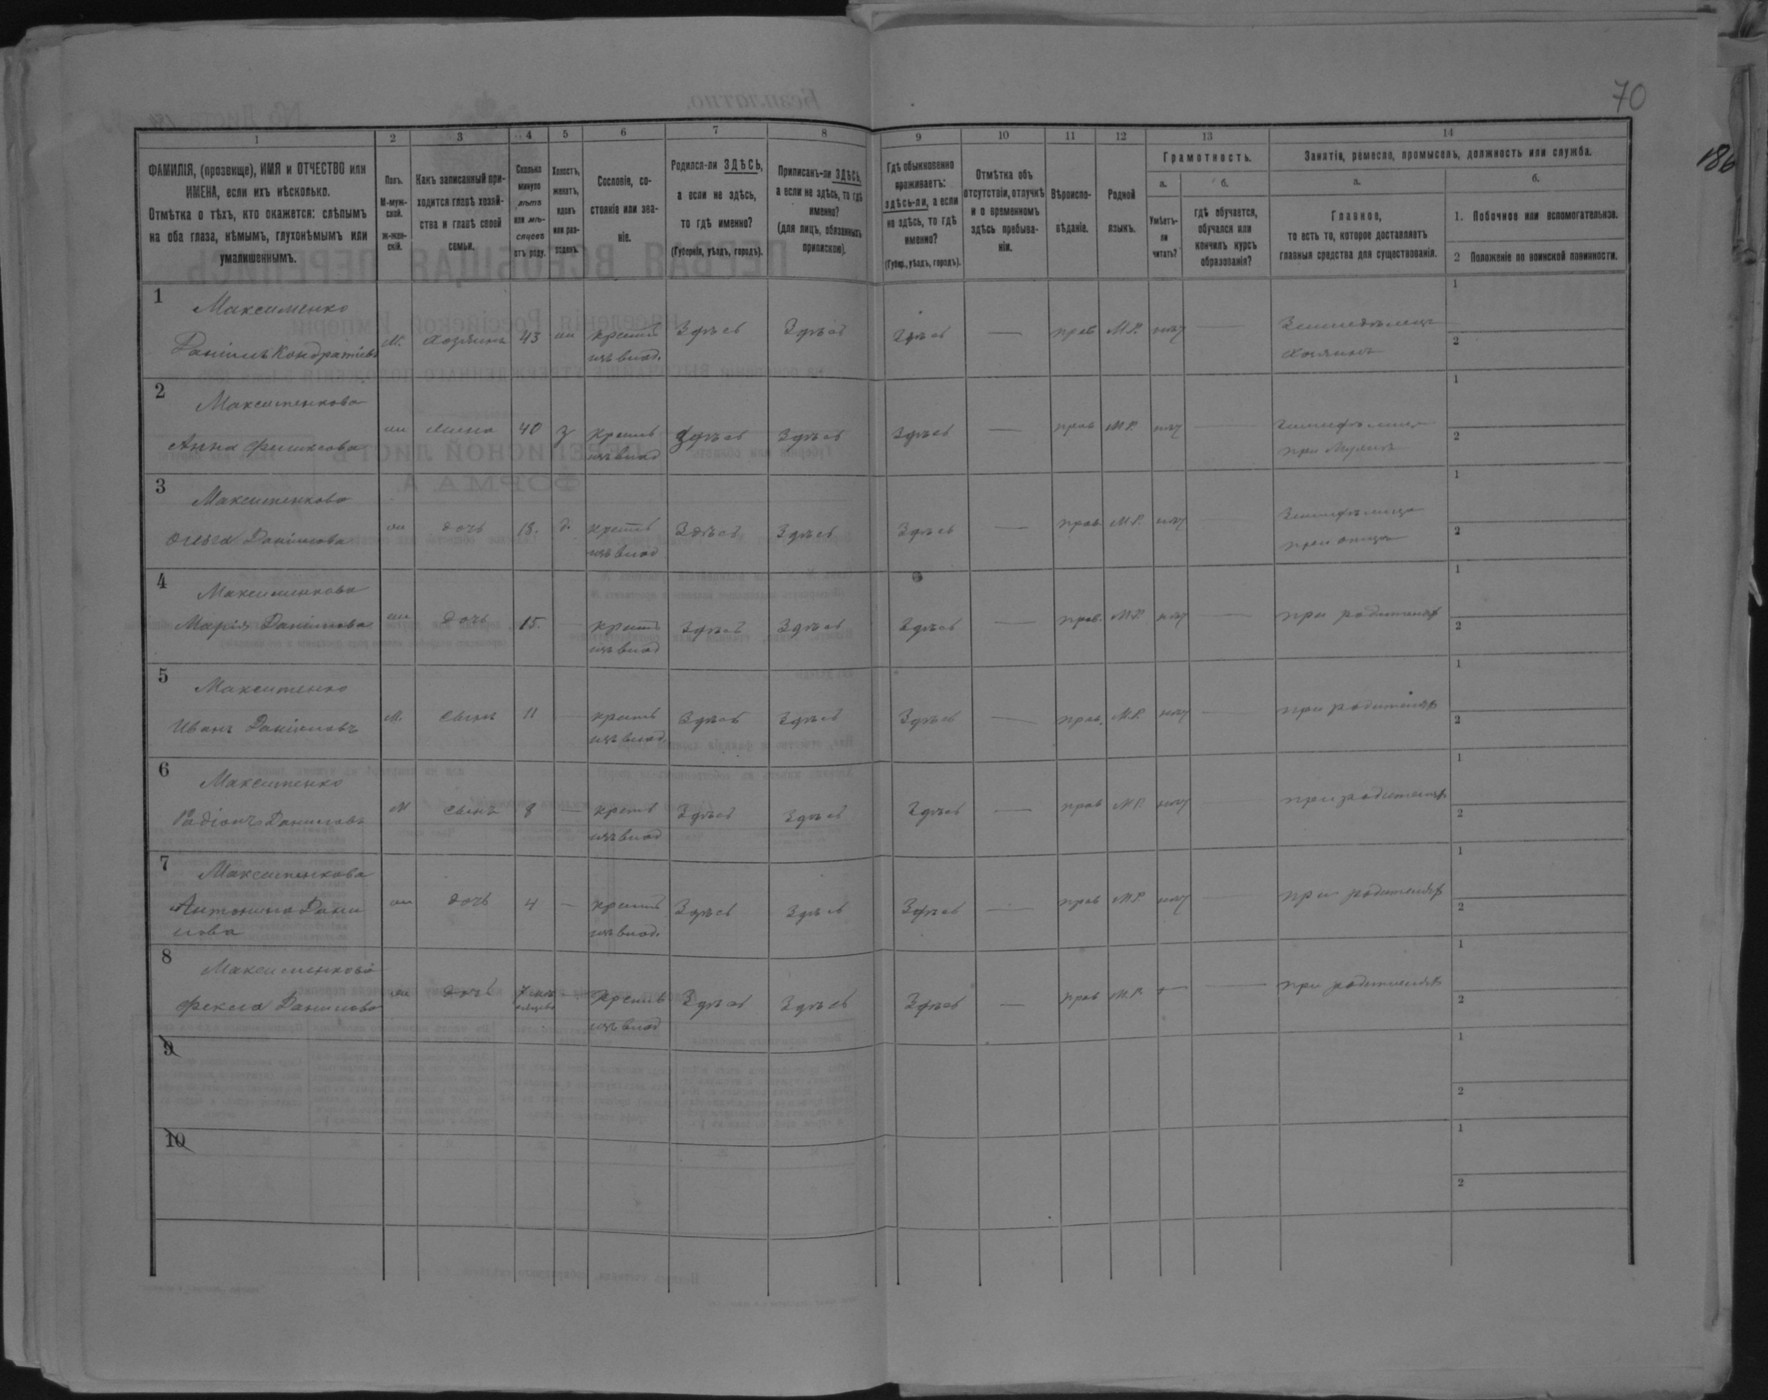 70
186
1
2
3
4
5
6
7
8
9
10
11
12
13
14
ФАМИЛІЯ, (прозвище), ИМЯ и ОТЧЕСТВО или
ИМЕНА, если ихъ нѣсколько.
Отмѣтка о тѣхъ, кто окажется: слѣпымъ
на оба глаза, нѣмымъ, глухонѣмымъ или
умалишеннымъ.
Полъ.
М-муж-
ской.
Ж-жен-
скій.
Какъ записанный при-
ходится главѣ хозяй-
ства и главѣ своей
семьи.
Сколько
минуло
лѣтъ
или мѣ-
сяцевъ
отъ роду.
Холостъ,
женатъ,
вдовъ
или раз-
веденъ.
Сословіе, со-
стояніе или зва-
ніе.
Родился-ли ЗДѢСЬ,
а если не здѣсь,
то гдѣ именно?
(Губернія, уѣздъ, городъ).
Приписанъ-ли ЗДѢСЬ,
а если не здѣсь, то гдѣ
именно?
(для лицъ, обязанныхъ
припискою).
Гдѣ обыкновенно
проживаетъ:
здѣсь-ли, а если
не здѣсь, то гдѣ
именно?
(Губер., уѣздъ, городъ).
Отмѣтка объ
отсутствіи, отлучкѣ
и о временномъ
здѣсь пребыва-
ніи.
Вѣроиспо-
вѣданіе.
Родной
языкъ.
Грамотность.
а.
б.
Умѣетъ-
ли
читать?
гдѣ обучается,
обучался или
кончилъ курсъ
образованія?
Занятія, ремесло, промыселъ, должность или служба.
а.
б.
Главное,
то есть то, которое доставляетъ
главныя средства для существованія.
1. Побочное или вспомогательное.
2 Положеніе по воинской повинности.
1
Максименко
Даніилъ Кондратіевъ
М. Хозяинъ 43 крестьян. Здѣсь Здѣсь Здѣсь — прав М.Р. нѣт — Земледѣлецъ
из влад. хозяинъ
1
2
2
Максименкова
Анна 40 з крестьян. Здѣсь Здѣсь Здѣсь — прав М.Р. нѣт —
из влад при мужѣ
1
2
3
Максименкова
Ольга Даніилова дочь 18. крестьян. Здѣсь Здѣсь Здѣсь — прав М.Р. нѣт —
из влад при отцѣ
1
2
4
Максименкова
Марія Даніилова дочь 15. крестьян. Здѣсь Здѣсь Здѣсь — прав. М.Р. нѣт — при родителяхъ
из влад
1
2
5
Максименко
Иванъ Даніиловъ М. сынъ 11 — крестьян. Здѣсь Здѣсь Здѣсь — прав. М.Р. нѣт — при родителяхъ
из влад
1
2
6
Максименко
Радіонъ Даниловъ М сынъ 8 — крестьян. Здѣсь Здѣсь Здѣсь — прав М.Р. нѣт — при родителяхъ
из влад
1
2
7
Максименкова
Антонина Дани дочь 4 — крестьян. Здѣсь Здѣсь Здѣсь — прав М.Р. нѣт — при родителяхъ
лова из влад.
1
2
8
Максименкова
Фекла Данилова дочь 7 — крестьян. Здѣсь Здѣсь Здѣсь — прав М.Р. — при родителяхъ
мѣсяцевъ из влад
1
2
9
1
2
10
1
2